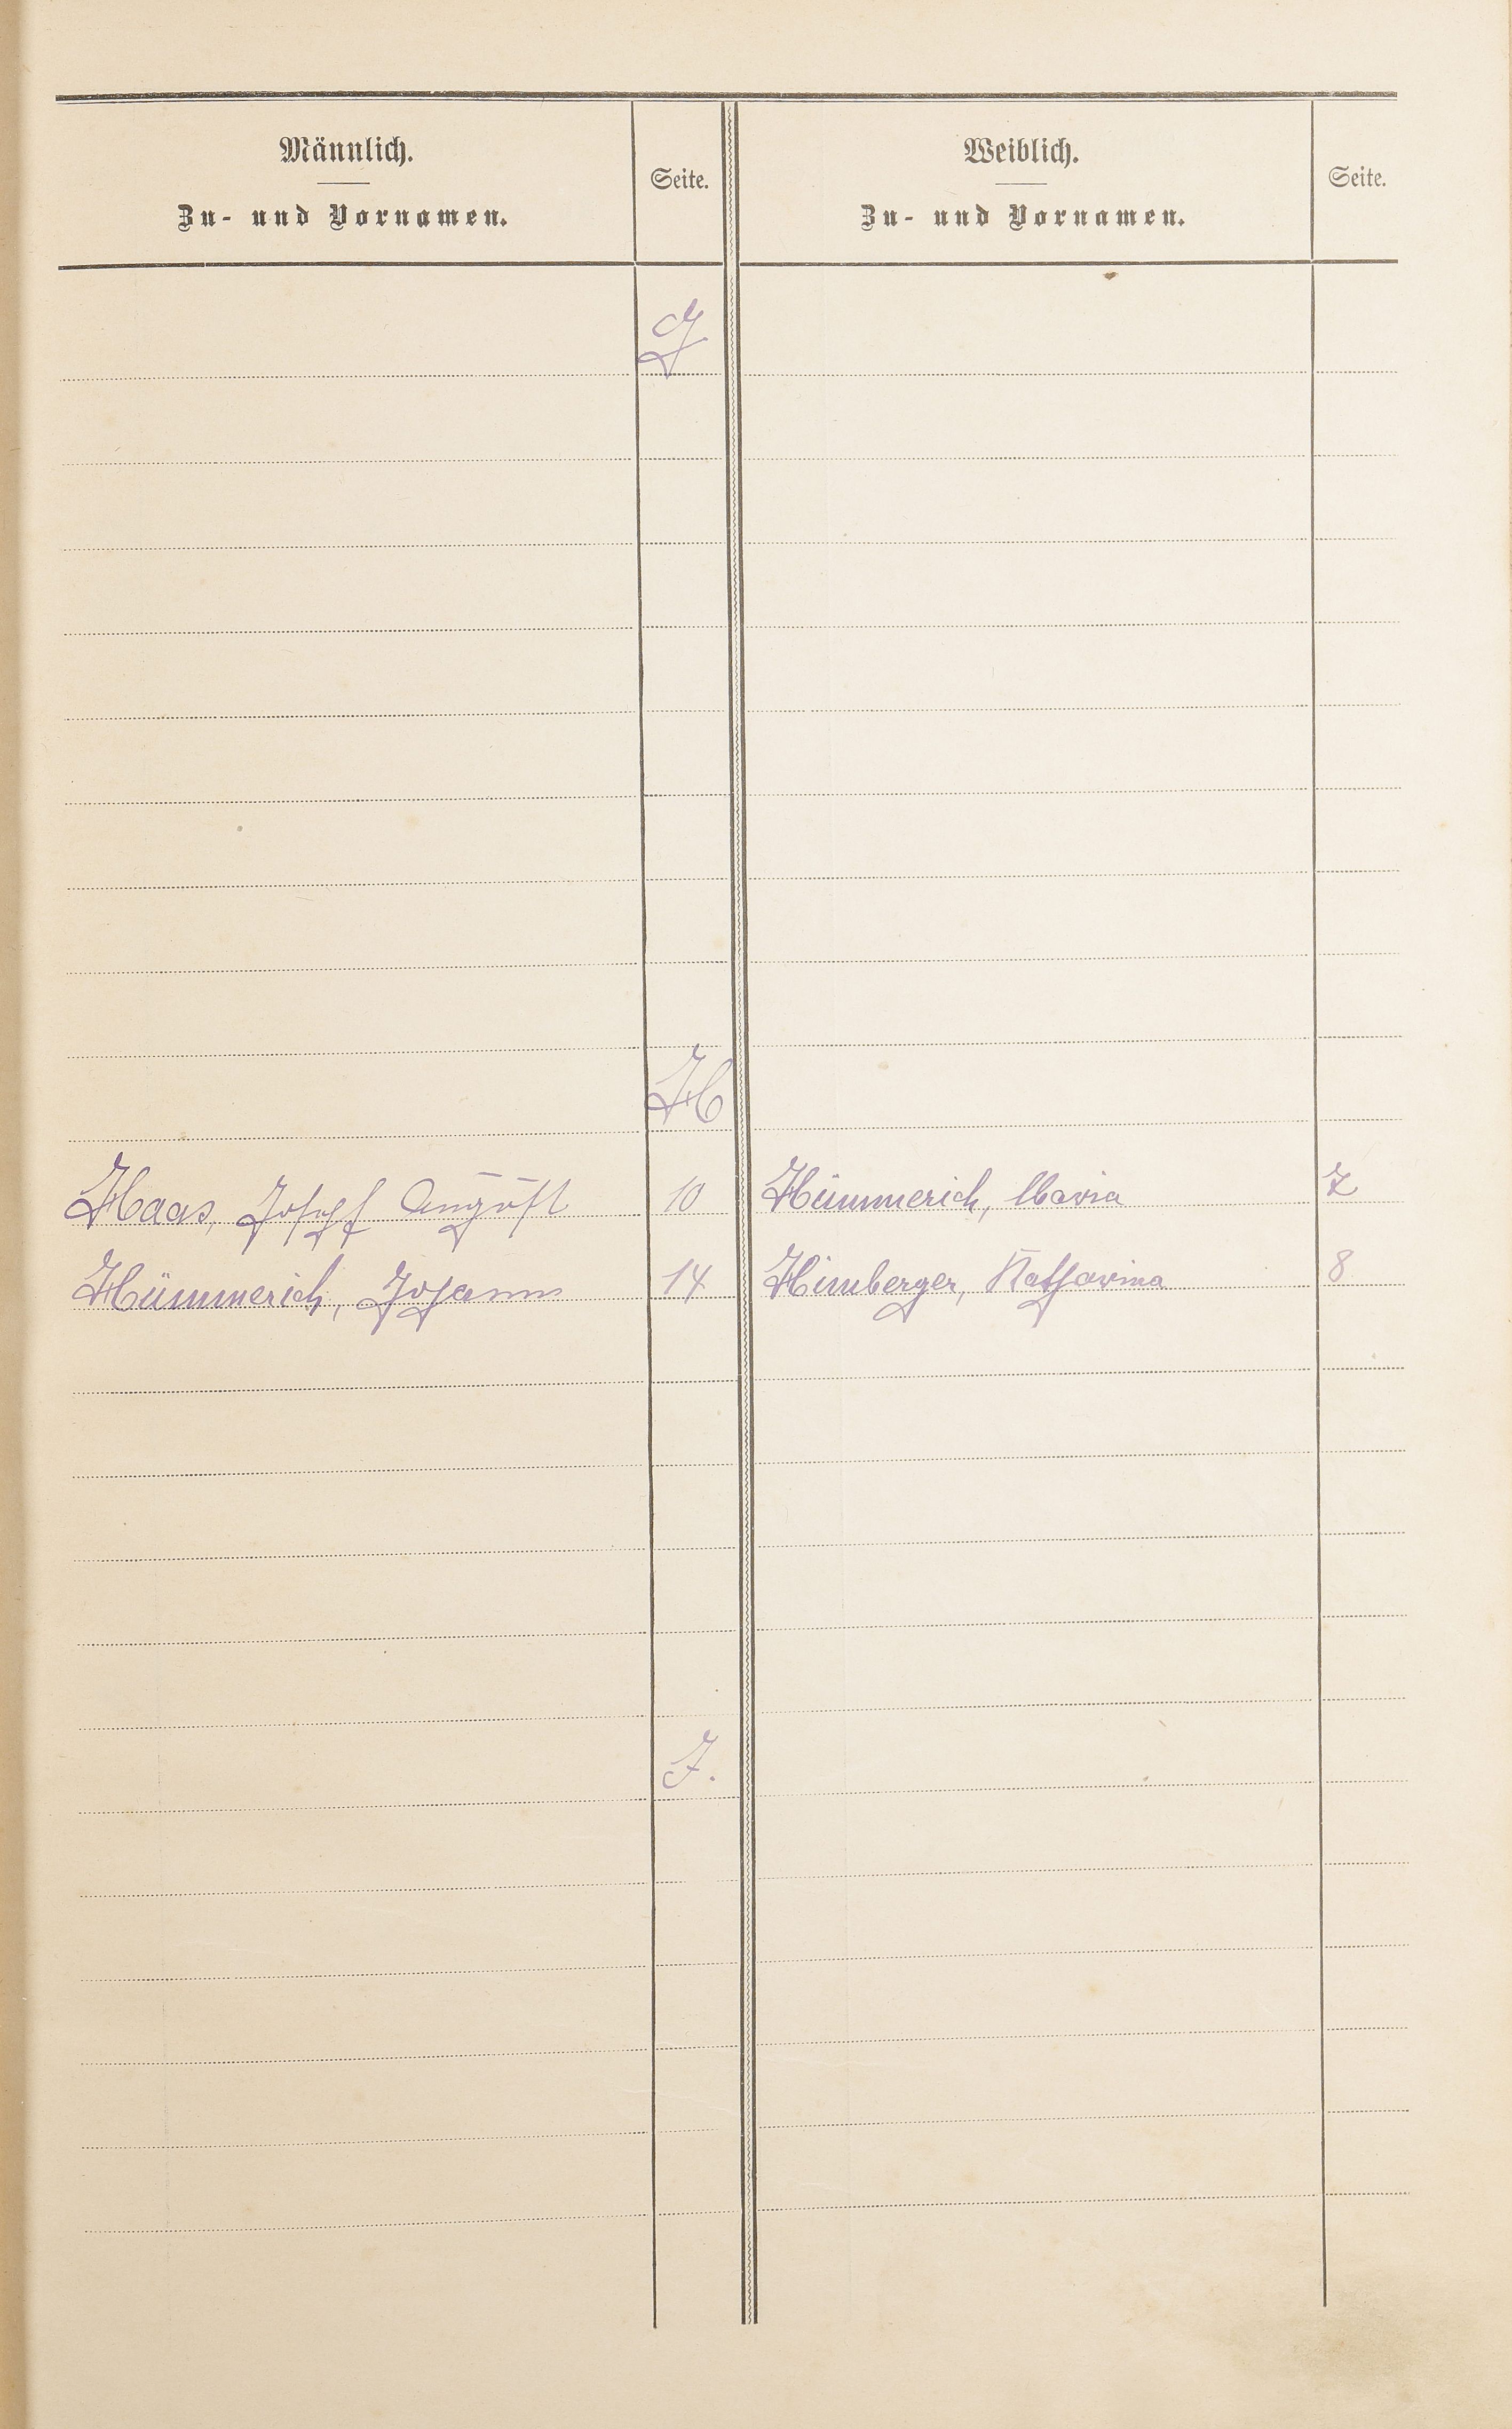 Männlich.
Zu- und Vornamen.
Seite.
Weiblich.
Zu- und Vornamen.
Seite.
G
H
Haas, Josef August 10 Hümmerich, Maria 7
Hümmerich, Johann 14 Himberger, Katharina 8
J.